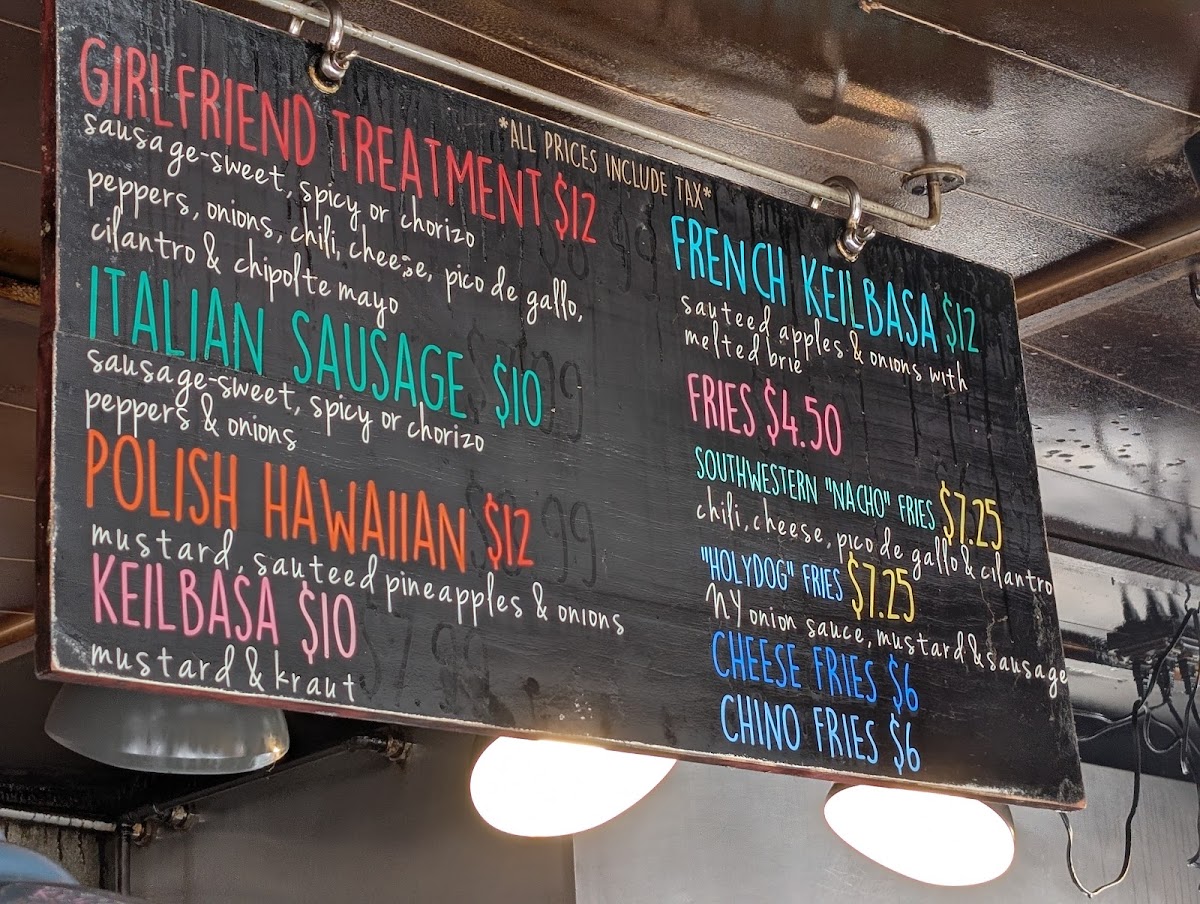 GIRLFRIEND TREATMENT $12
sausage-sweet, spicy or chorizo
peppers, onions, chili, cheese, pico de gallo,
cilantro & chipolte mayo
ITALIAN SAUSAGE $10
sausage-sweet, spicy or chorizo
peppers & onions
POLISH HAWAIIAN $12
mustard, sauteed pineapples & onions
KEILBASA $10
mustard & kraut
*ALL PRICES INCLUDE TAX*
FRENCH KEILBASA $12
sauteed apples & onions with
melted brie
FRIES $4.50
SOUTHWESTERN "NACHO" FRIES $7.25
chili, cheese, pico de gallo & cilantro
"HOLYDOG" FRIES $7.25
NY onion sauce, mustard & sausage
CHEESE FRIES $6
CHINO FRIES $6